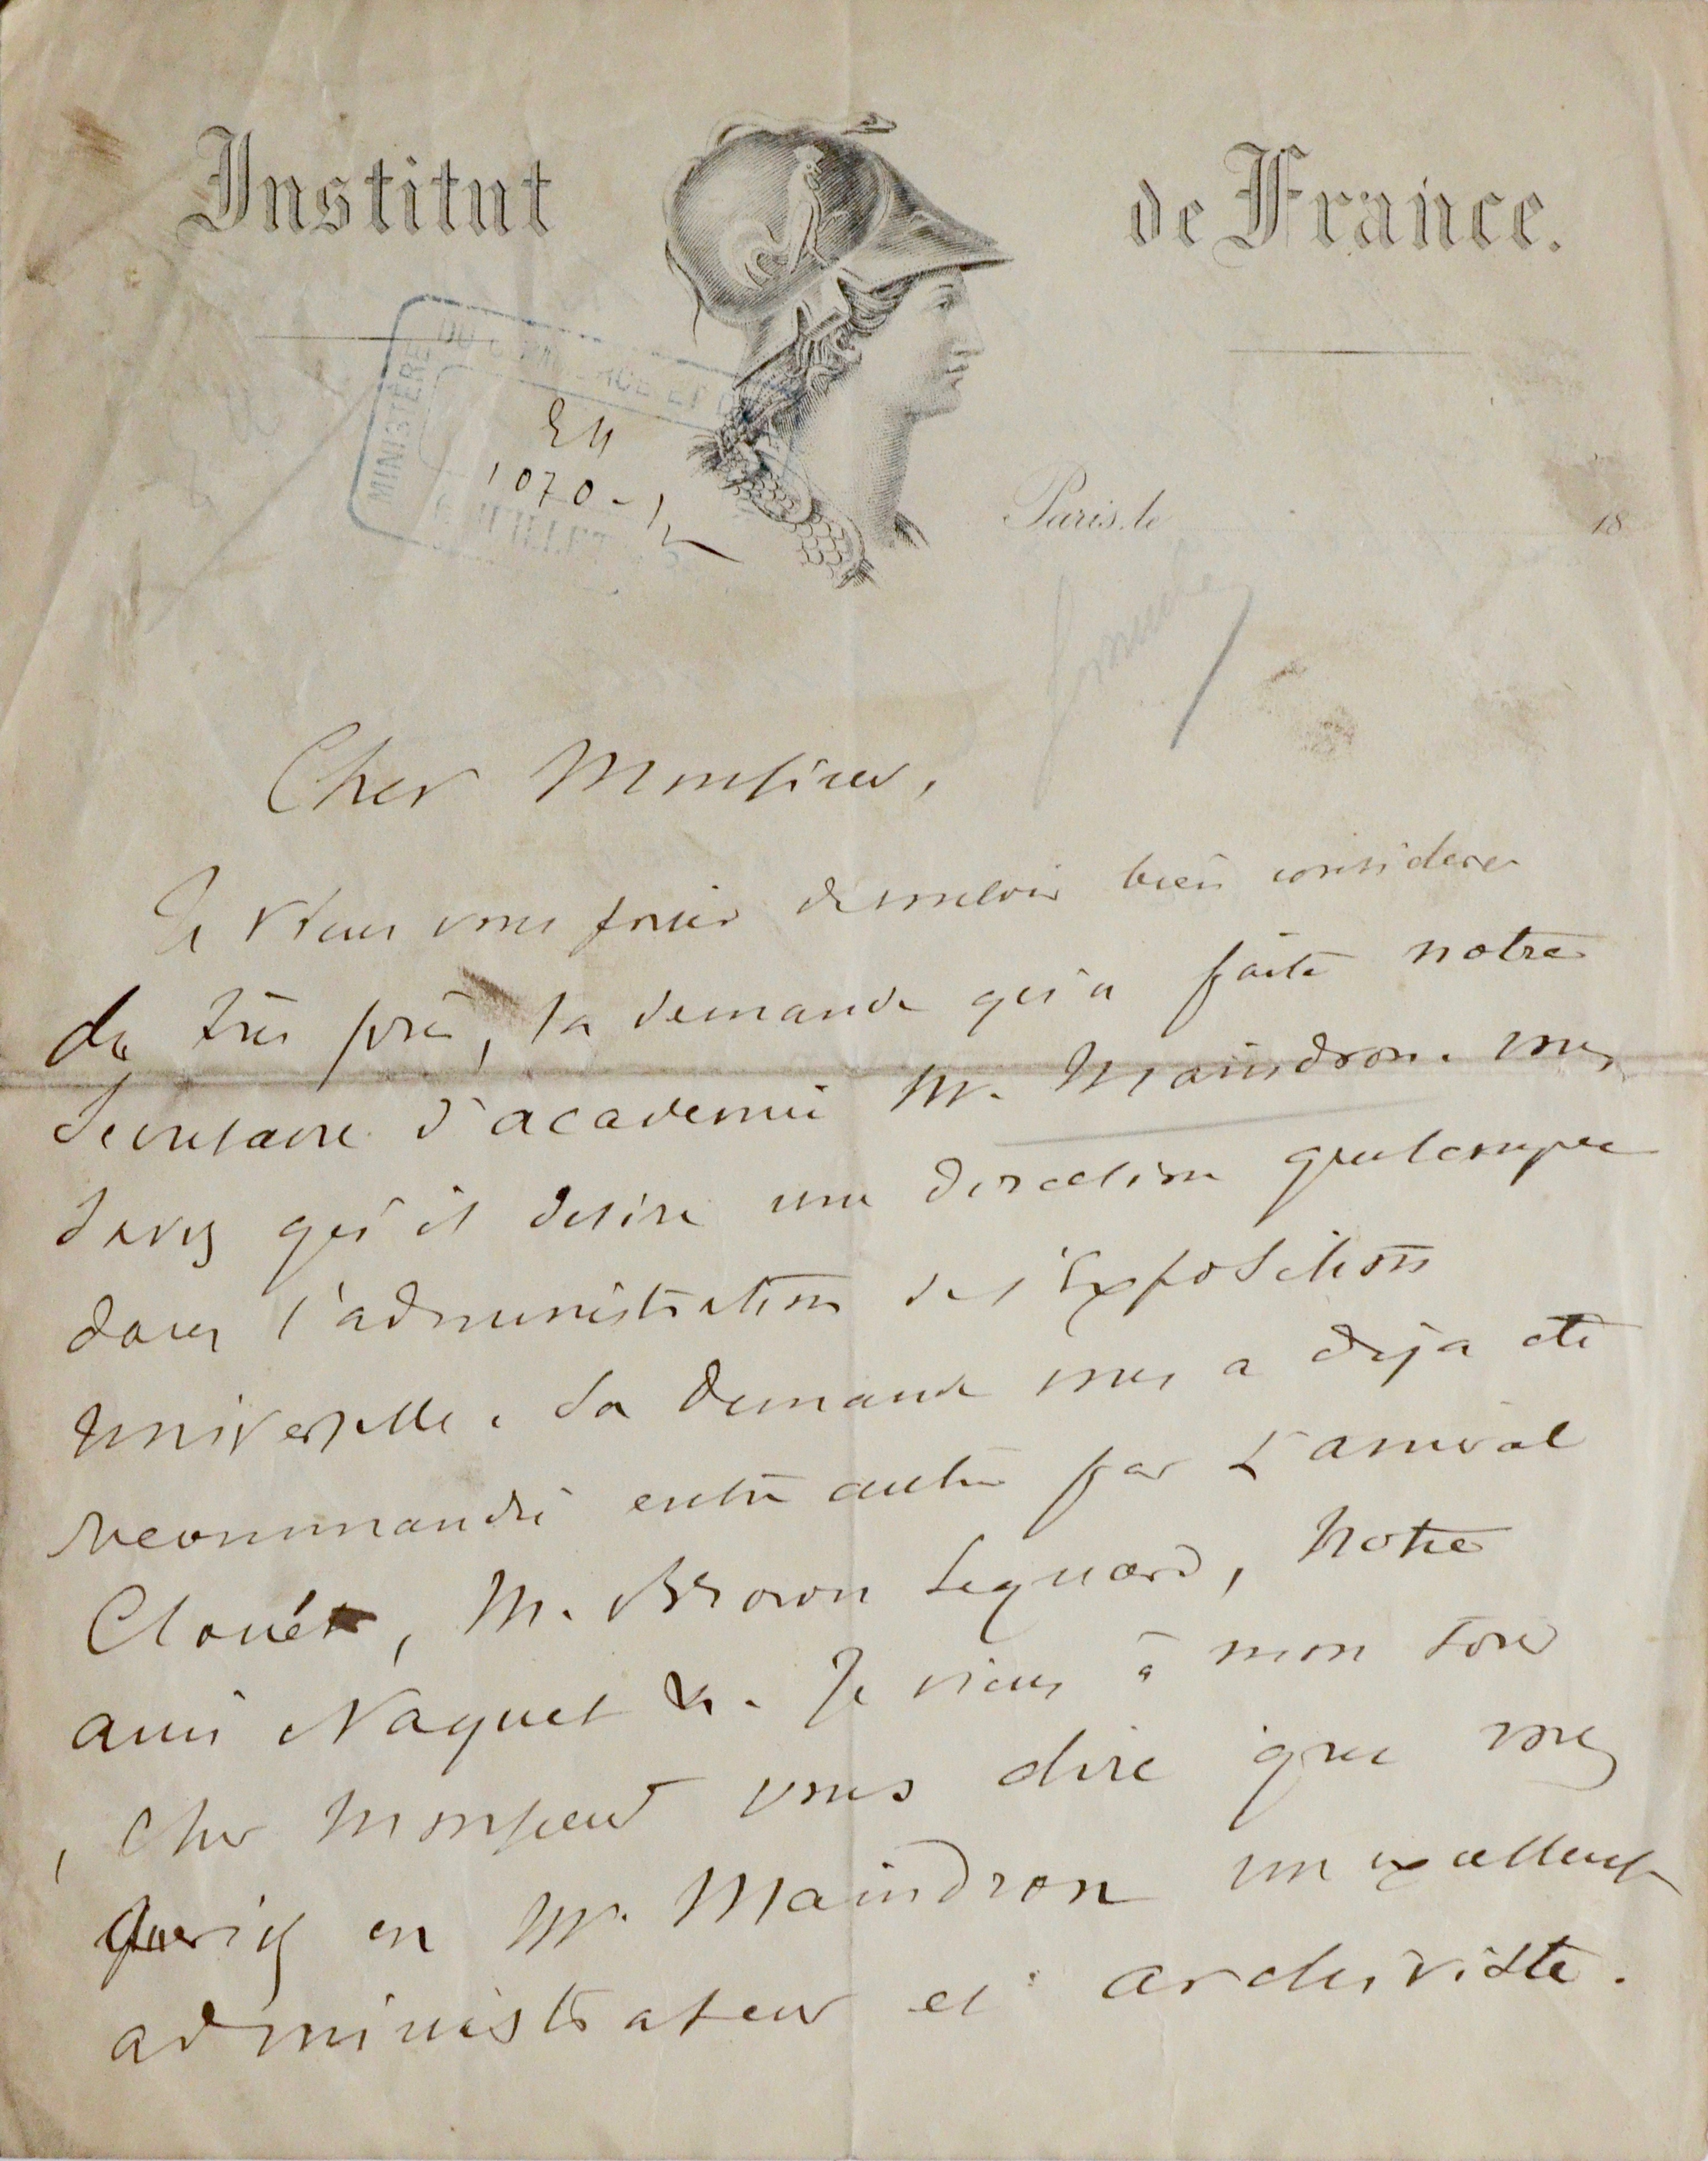 Institut de France.
MINISTÈRE DU COMMERCE ET DE
JUILLET
1070
Paris, le 18
Cher Monsieur,
Je viens vous prier de vouloir bien considerer
de très près, la demande qu'a faite notre
Secretaire d'academie M. Maindron. vous
savez qu'il desire une direction quelconque
dans l'administration de l'Exposition
universelle. Sa demande vous a deja été
recommandée entre autre par L'amiral
Clouét, M. Brown Sequard, notre
ami Naquet &. Je viens à mon tour
, cher Monsieur vous dire que vous
auriez en M. Maindron un excellent
administrateur et archiviste.